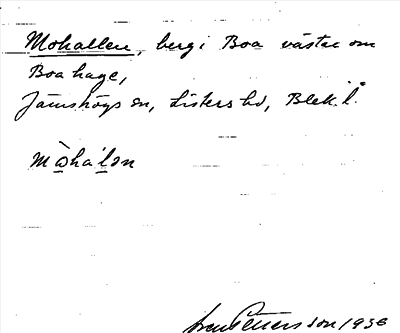 Mohallen, berg i Boa väster om
Boa hage,
Jämshögs sn, Listers hd, Blek. l.
Mòha'lən
Pettersson 1936